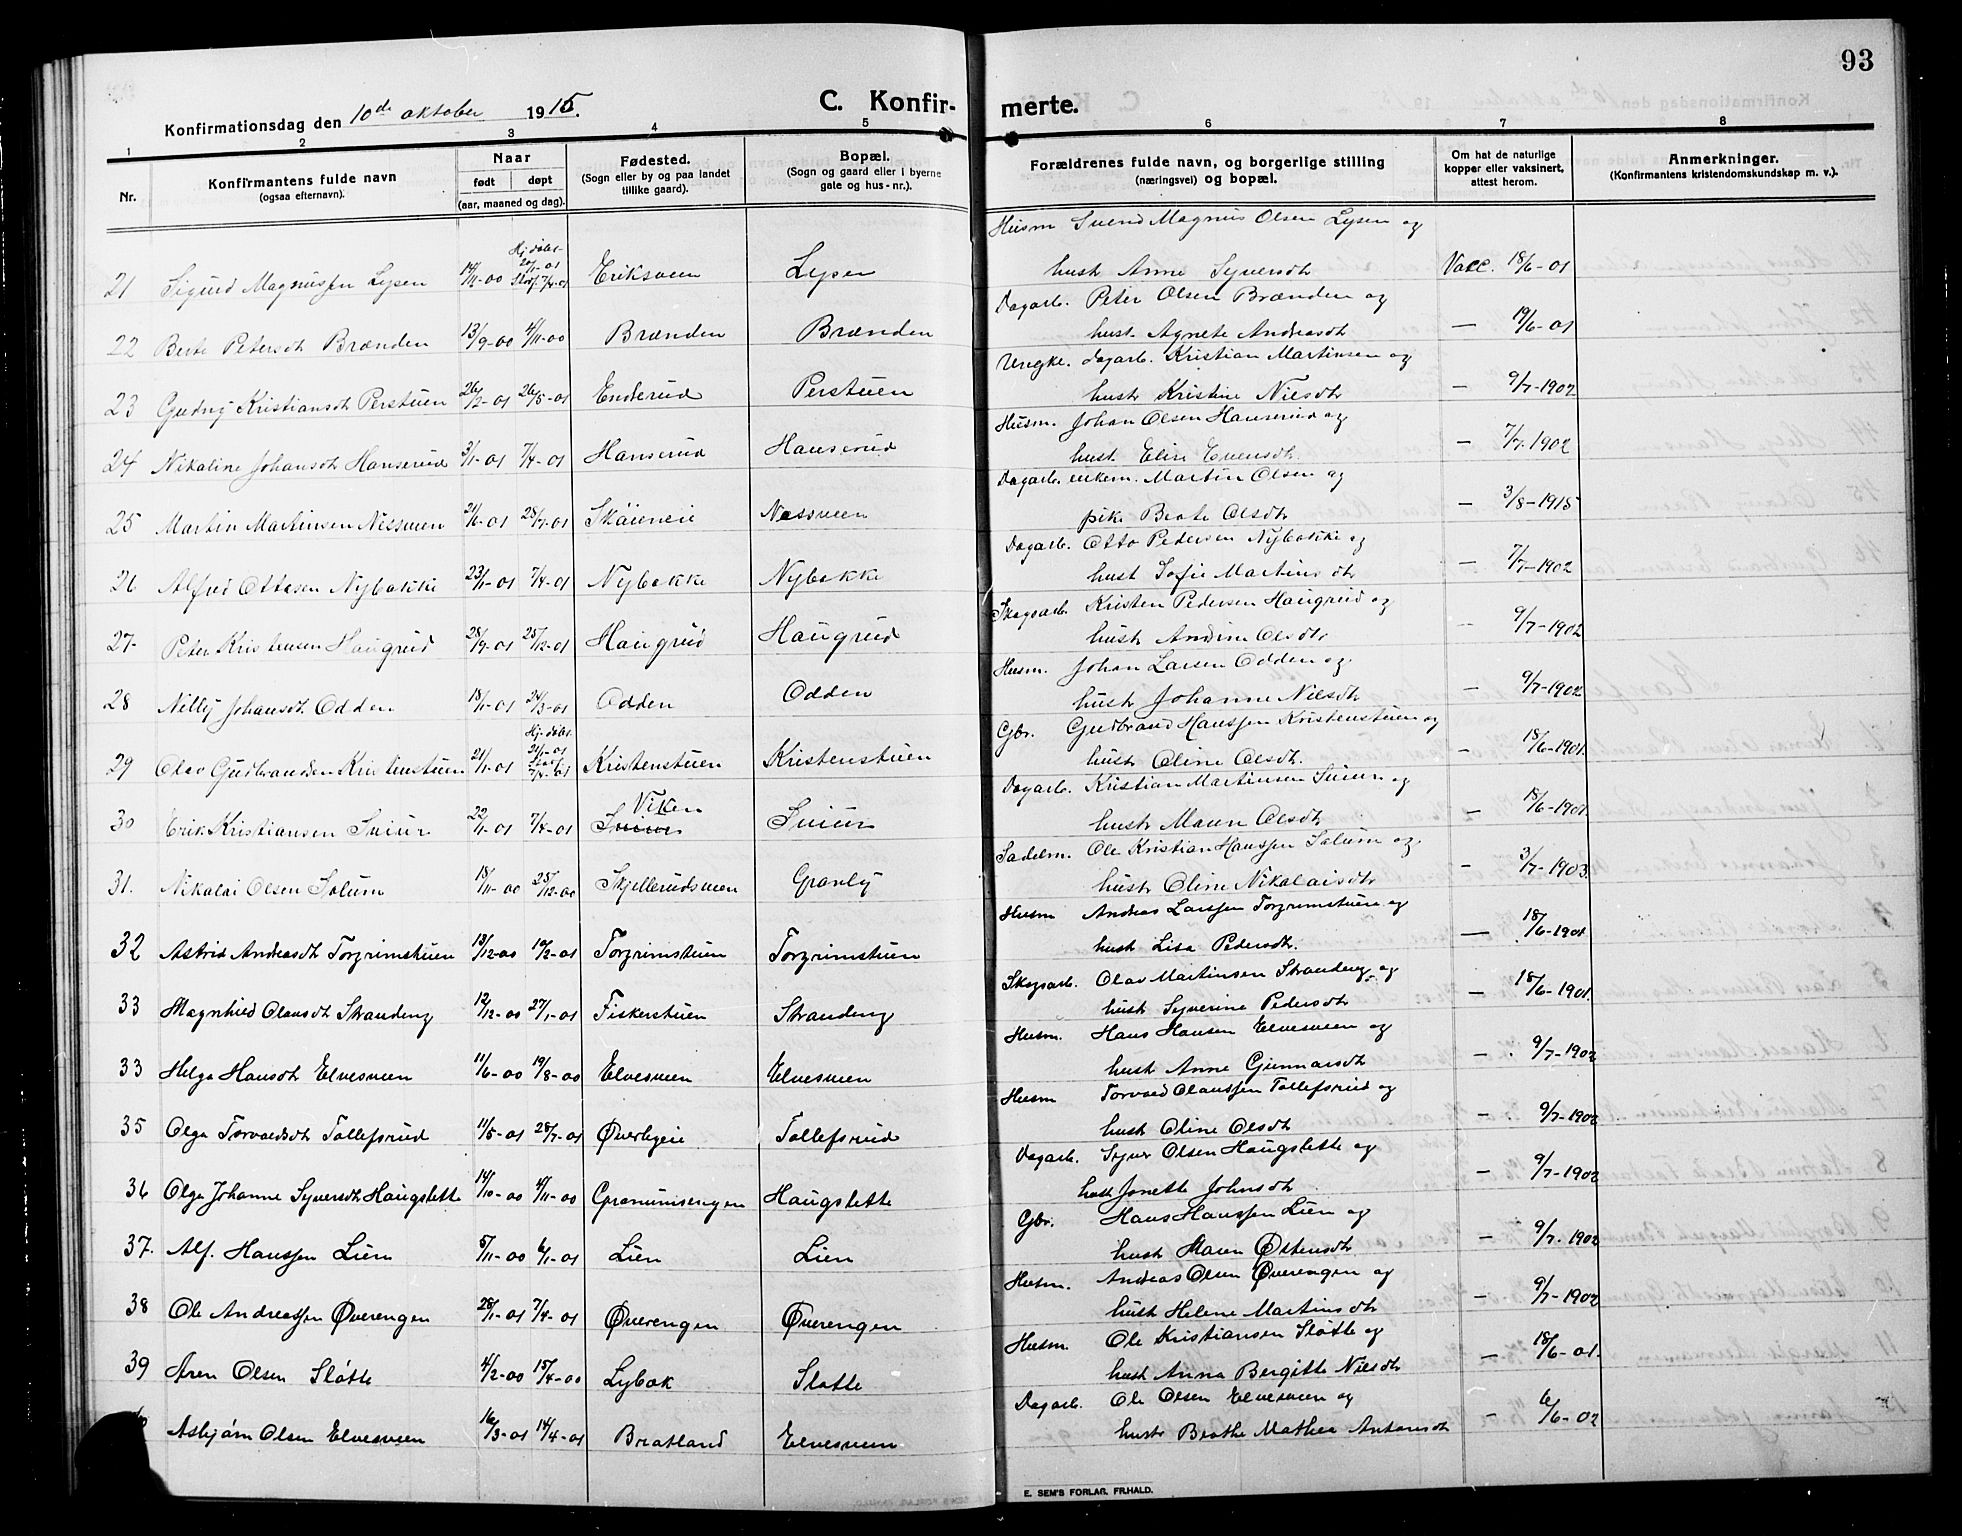 93
Konfirmationsdag den 10de oktober 1915.
C. Konfirmerte.
1 2 3 4 5 6 7 8
Nr.
Konfirmantens fulde navn
(ogsaa efternavn).
Naar
født døpt
(aar, maaned og dag).
Fødested.
(Sogn eller by og paa landet
tillike gaard).
Bopæl.
(Sogn og gaard eller i byerne
gate og hus-nr.).
Forældrenes fulde navn, og borgerlige stilling
(næringsvei) og bopæl.
Om hat de naturlige
kopper eller vaksinert,
attest herom.
Anmerkninger.
(Konfirmantens kristendomskundskap m. v.).
Husm Svend Magnus Olsen Lysen og
21 Sigurd Magnussen Lysen 14/11-00 Hj. døbt 20/1-01 Stadf. 7/4-01 Eriksveen Lysen hustr Anne Syversdtr Vacc. 18/6-01
Dagarb. Peter Olsen Brænden og
22 Berte Petersdt Brænden 13/9-00 4/11-00 Brænden Brænden hust. Agnete Andreasdt — 19/6-01
Ungke. dagarb. Kristian Martinsen og
23 Gudny Kristiansdt Perstuen 26/2-01 26/5-01 Enderud Perstuen hustr Kristine Nilsdtr — 9/7-1902
Husm. Johan Olsen Hanserud og
24 Nikaline Johansdt Hanserud 3/1-01 7/4-01 Hanserud Hanserud hust. Eline Evensdtr — 7/7-1902
Dagarb. enkem. Martin Olsen og
25 Martin Martinsen Nessveen 21/6-01 28/7-01 Skøieneie Nessveen pike Berte Olsdtr — 3/8-1915
Dagarb. Otto Pedersen Nybakke og
26 Alfred Ottosen Nybakke 23/1-01 7/4-01 Nybakke Nybakke hust Sofie Martinsdtr — 7/7-1902
Skogsarb. Kristen Pedersen Haugrud og
27. Peter Kristensen Haugrud 28/9-01 25/12-01 Haugrud Haugrud hustr Andine Olsdtr — 9/7-1902
Husm. Johan Larsen Odden og
28 Nelly Johansdt. Odden 18/1-01 24/3-01 Odden Odden hustr Johanne Nilsdtr — 9/7-1902
Gbr. Gudbrand Hanssen Kristenstuen og
29 Olav Gudbrandsen Kristenstuen 21/1-01 Hj. døbt 21/1-01 Stadf. 7/4-01 Kristenstuen Kristenstuen hustr Oline Olsdtr. — 18/6-1901.
Dagarb. Kristian Martinsen Sniur og
30 Erik Kristiansen Sniur 22/1-01 7/4-01 Viken Sniur Sniur hustr Maren Olsdtr — 18/6-1901.
Sadelm. Ole Kristian Hanssen Solum og
31. Nikolai Olsen Solum 18/11-00 25/12-00 Skjellerudsveen Granly hustr Oline Nikolaisdtr — 3/7-1903.
Husm Andreas Larssen Torgrimstuen og
32 Astrid Andreasdt Torgrimstuen 13/12-00 10/2-01 Torgrimstuen Torgrimstuen hustr Lisa Pedersdtr. — 18/6-1901.
Skogsarb. Olav Martinsen Strandeng og
33 Magnhild Olausdt Strandeng 12/12-00 27/1-01 Fiskerstuen Strandeng hustr Syverine Pedersdtr — 18/6-1901.
Husm. Hans Hansen Elvesveen og
33 Helga Hansdt Elvesveen 11/6-00 19/8-00 Elvesveen Elvesveen hustr Anne Gunnarsdtr — 9/7-1902
Husm Torvald Olaussen Tollefsrud og
35 Olga Torvaldsdt Tollefsrud 11/5-01 28/7-01 Øverbyeie Tollefsrud hustr Oline Olsdtr — 9/7-1902
Dagarb. Syver Olsen Haugslette og
36 Olga Johanne Syversdt Haugslette 14/10-00 4/11-00 Granumsengen Haugslette hustr Jonette Johnsdtr — 9/7-1902
Gbr. Hans Hanssen Lien og
37. Alf. Hanssen Lien 5/11-00 6/1-01 Lien Lien hustr Maren Østensdtr — 9/7-1902
Husm. Andreas Olsen Øverengen og
38 Ole Andreassen Øverengen 28/1-01 7/4-01 Øverengen Øverengen hustr Helene Martinsdtr — 9/7-1902
Husm. Ole Kristiansen Sløtte og
39 Aren Olsen Sløtte 4/2-00 15/4-00 Lybæk Sløtte hustr Anna Bergitte Nilsdtr — 18/6-01.
Dagarb. Ole Olsen Elvesveen og
Asbjørn Olsen Elvesveen 16/3-01 14/4-01 Bratland Elvesveen hustr Berthe Mathea Antonsdtr — 6/6-02
E. SEM'S FORLAG, FR.HALD.